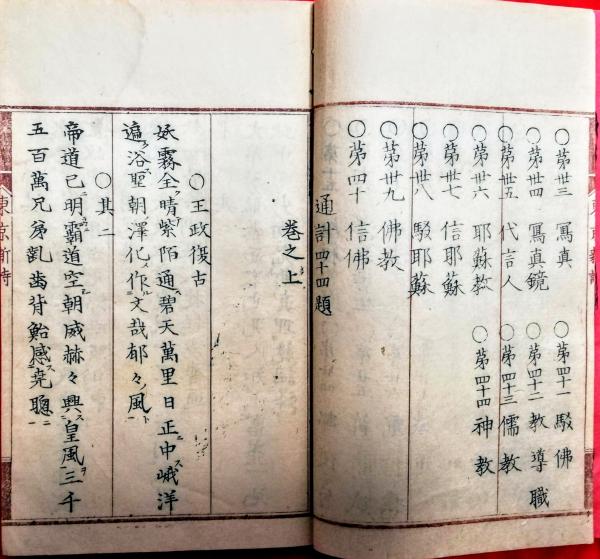 東京新詩
○苐卅三 冩真
○苐卅四 冩真鏡
○苐卅五 代言人
○苐卅六 耶蘇教
○苐卅七 信耶蘇
○苐卅八 駁耶蘇
○苐卅九 佛教
○苐四十 信佛
○苐四十一 駁佛
○苐四十二 教導職
○苐四十三 儒教
○苐四十四 神教
通計四十四題
卷之上
○王政復古
妖霧全晴紫陌通碧天萬里日正中峨洋
遍浴聖朝澤化作文哉郁々風
○其二
帝道已明霸道空朝威赫々興皇風三千
五百萬兄弟亂齒背鮐感堯聰
東京新詩